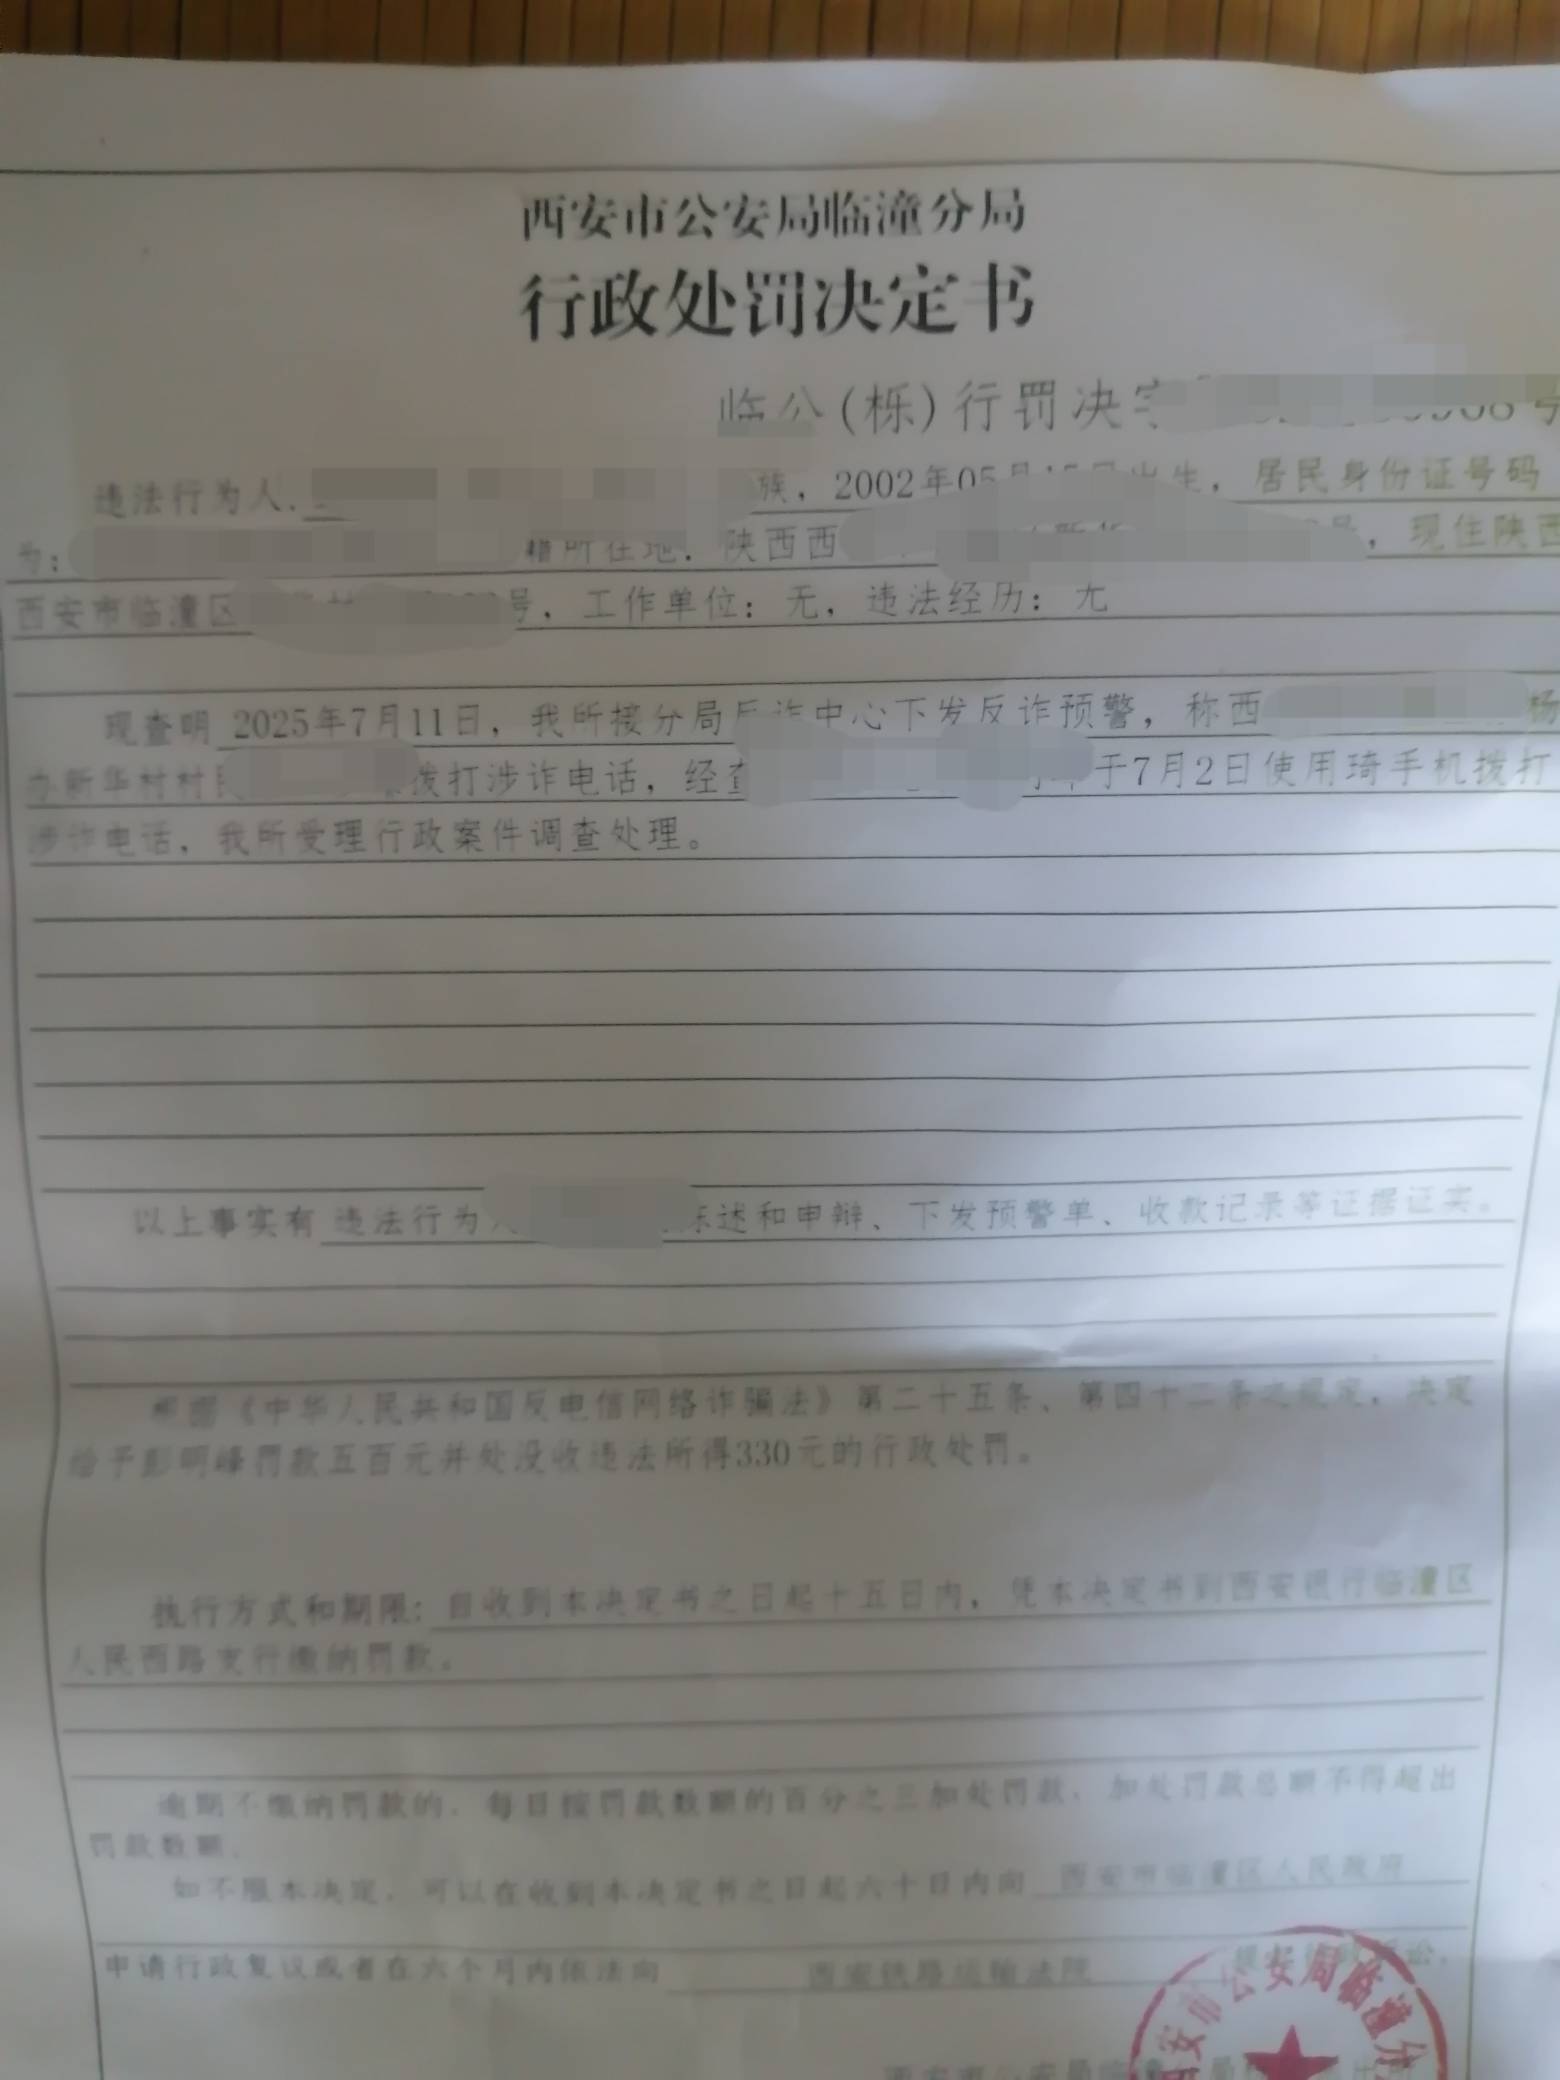 西安市公安局临潼分局
行政处罚决定书
临公(栎)行罚决定 号
违法行为人 族，2002年05月15日出生，居民身份证号码
为： 籍所在地：陕西西 号，现住陕西
西安市临潼区 号，工作单位：无，违法经历：无
现查明 2025年7月11日，我所接分局反诈中心下发反诈预警，称西 杨
办新华村村民 拨打涉诈电话，经查 于7月2日使用琦手机拨打
涉诈电话，我所受理行政案件调查处理。
以上事实有 违法行为人 陈述和申辩、下发预警单、收款记录等证据证实。
根据《中华人民共和国反电信网络诈骗法》第二十五条、第四十二条之规定，决定
给予彭明峰罚款五百元并处没收违法所得330元的行政处罚。
执行方式和期限：自收到本决定书之日起十五日内，凭本决定书到西安银行临潼区
人民西路支行缴纳罚款。
逾期不缴纳罚款的，每日按罚款数额的百分之三加处罚款，加处罚款总额不得超出
罚款数额。
如不服本决定，可以在收到本决定书之日起六十日内向 西安市临潼区人民政府
申请行政复议或者在六个月内依法向 西安铁路运输法院 提起行政诉讼。
西安市公安局临潼分
西安市公安局临潼 局